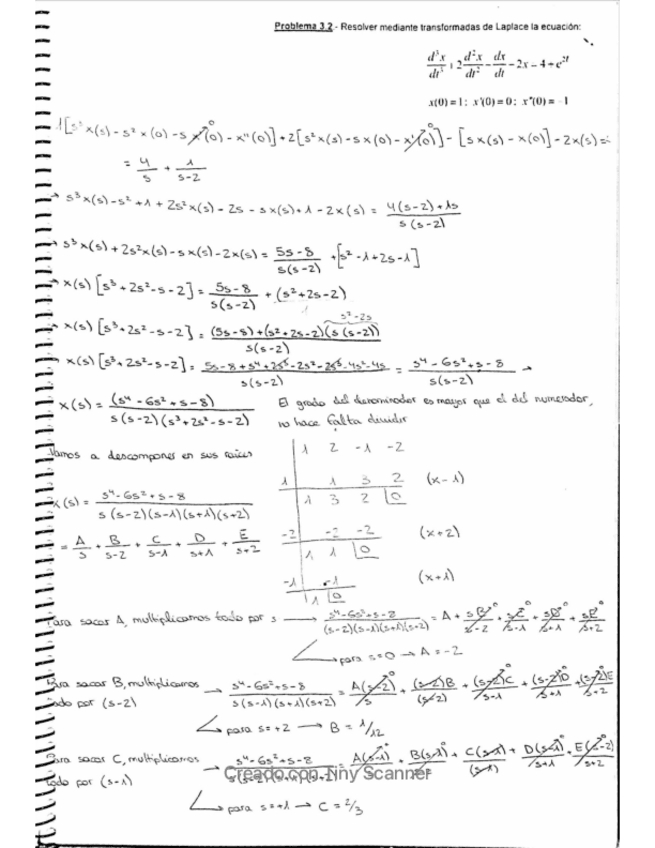 Problema 3.2.- Resolver mediante transformadas de Laplace la ecuación:
d³x/dt³ + 2 d²x/dt² - dx/dt - 2x = 4 + e^2t
x(0) = 1; x'(0) = 0; x''(0) = -1
[s³x(s) - s²x(0) - sx'(0) - x''(0)] + 2[s²x(s) - sx(0) - x'(0)] - [sx(s) - x(0)] - 2x(s) =
= 4/s + 1/(s-2)
→ s³x(s) - s² + 1 + 2s²x(s) - 2s - sx(s) + 1 - 2x(s) = (4(s-2) + 1s)/(s(s-2))
→ s³x(s) + 2s²x(s) - sx(s) - 2x(s) = (5s-8)/(s(s-2)) + [s² - 1 + 2s - 1]
→ x(s) [s³ + 2s² - s - 2] = (5s-8)/(s(s-2)) + (s² + 2s - 2)
s² - 2s
→ x(s) [s³ + 2s² - s - 2] = ((5s-8) + (s² + 2s - 2)(s(s-2)))/(s(s-2))
→ x(s) [s³ + 2s² - s - 2] = (5s - 8 + s⁴ + 2s³ - 2s² - 2s³ - 4s² - 4s)/(s(s-2)) = (s⁴ - 6s² + s - 8)/(s(s-2)) →
x(s) = (s⁴ - 6s² + s - 8)/(s(s-2)(s³ + 2s² - s - 2))
El grado del denominador es mayor que el del numerador,
no hace falta dividir
Vamos a descomponer en sus raíces
1 2 -1 -2
1 1 3 2 (x-1)
1 3 2 0
-2 -2 -2 (x+2)
1 1 0
-1 -1 (x+1)
1 0
x(s) = (s⁴ - 6s² + s - 8)/(s(s-2)(s-1)(s+1)(s+2))
= A/s + B/(s-2) + C/(s-1) + D/(s+1) + E/(s+2)
Para sacar A, multiplicamos todo por s → (s⁴ - 6s² + s - 8)/((s-2)(s-1)(s+1)(s+2)) = A + sB/(s-2) + sC/(s-1) + sD/(s+1) + sE/(s+2)
para s=0 → A = -2
Para sacar B, multiplicamos todo por (s-2) → (s⁴ - 6s² + s - 8)/(s(s-1)(s+1)(s+2)) = A(s-2)/s + (s-2)B/(s-2) + (s-2)C/(s-1) + (s-2)D/(s+1) + (s-2)E/(s+2)
para s=+2 → B = 1/12
Para sacar C, multiplicamos todo por (s-1) → (s⁴ - 6s² + s - 8)/(s(s-2)(s+1)(s+2)) = A(s-1)/s + B(s-1) + C(s-1)/(s-1) + D(s-1)/(s+1) + E(s-2)/(s+2)
Creado con Tiny Scanner
para s=+1 → C = 2/3